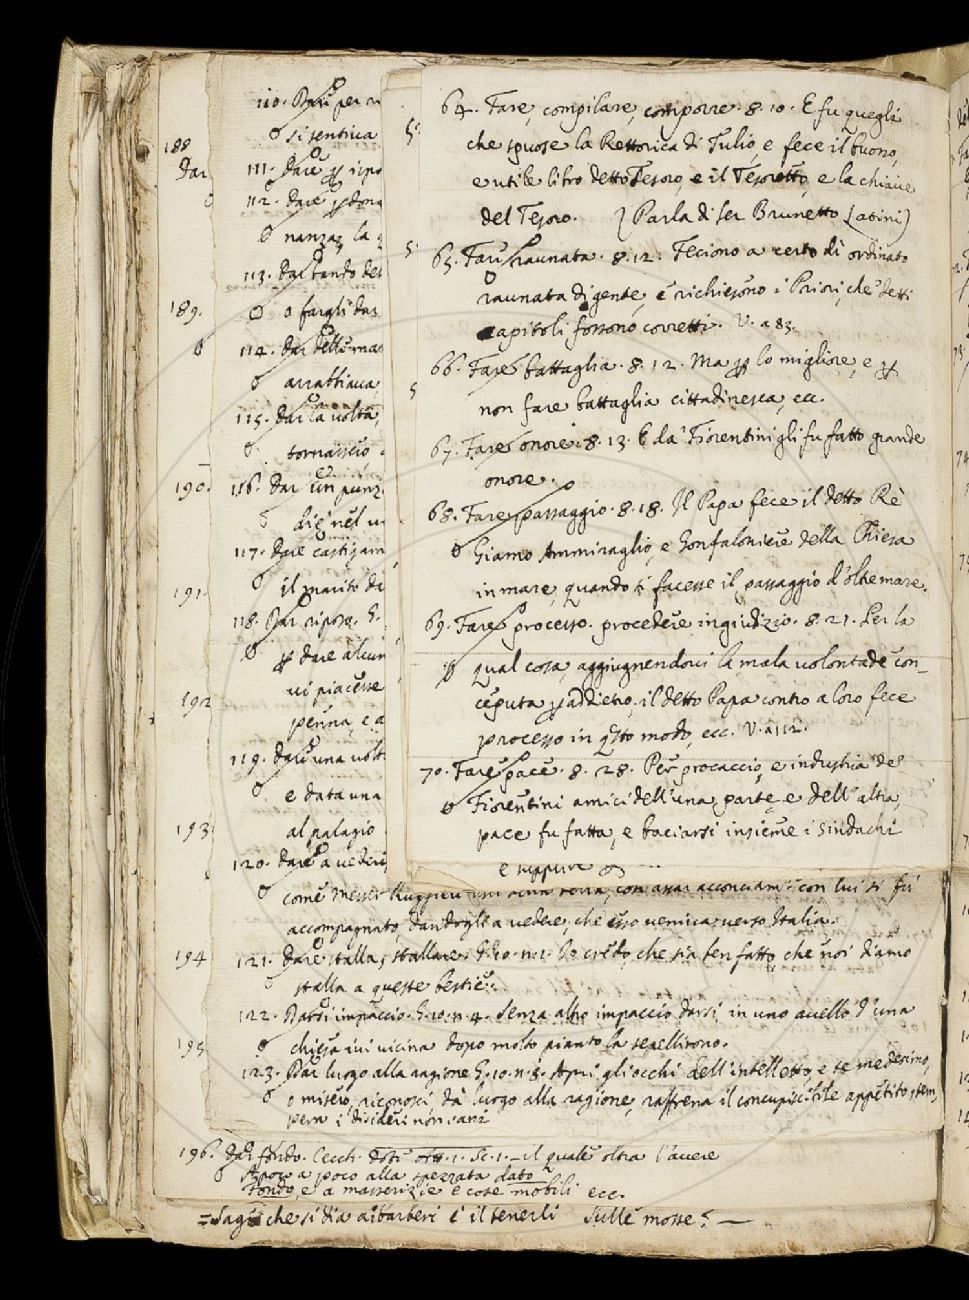 64. Fare, compilare, comporre. 8. 10. E fu quegli
che spuose la Rettorica di Tulio, e fece il buono,
e utile libro detto Tesoro, e il Tesoretto, e la chiave
del Tesoro. (Parla di ser Brunetto Latini)
65. Far raunata. 8. 12. Feciono a certo dì ordinato
raunata di gente, e richiesono i Priori, che detti
capitoli fossono corretti. V. a 83.
66. Fare battaglia. 8. 12. Ma p lo migliore, e p
non fare battaglia cittadinesca, ecc.
67. Fare onore. 8. 13. E da' Fiorentini gli fu fatto grande
onore.
68. Fare passaggio. 8. 18. Il Papa fece il detto Rè
Giamo Ammiraglio, e Gonfaloniere della Chiesa
in mare, quando si facesse il passaggio d'oltremare.
69. Fare processo. procedere in giudizio. 8. 21. Per la
qual cosa, aggiugnendovi la mala volontade con-
ceputa p addietro, il detto Papa contro a loro fece
processo in qsto modo, ecc. V. a 112.
70. Fare pace. 8. 28. Per procaccio, e industria de'
Fiorentini amici dell'una parte e dell'altra,
pace fu fatta, e baciarsi insieme i sindachi
188
Dar
110. Dar per
si sentiva
111. Dare p ripo
112. Dare p dona
nanza la
113. Dar bando del
189.
o fargli dar
114. Dar delle ma
arrabbiava
115. Dar la volta,
tornassero
190.
116. Dar un punz
diè nel
117. Dare castigam
191.
il marito da
118. Dar riposo. G.
p dare alcun
vi piacesse
192
penna, e a
119. Dare una volt
e data una
193
al palagio
120. Dare a vedere
come Messer Ruggieri con assai acconciam. con lui si fu
accompagnato, dandogli a vedere, che esso veniva verso Italia.
194
121. Dare stalla, stallare. G. 10. n. 1. Io credo, che sia ben fatto, che noi diamo
stalla a queste bestie.
122. Darsi impaccio. G. 10. n. 4. Senza altro impaccio darsi, in uno avello d'una
195
chiesa ivi vicina dopo molto pianto la sepellirono.
123. Dar luogo alla ragione G. 10. n. 8. Apri gli occhi dell'intelletto, e te medesimo,
o misero, riconosci dà luogo alla ragione, raffrena il concupiscibile appetito, tem,
pera i disideri non sani
196. Dar fondo. Cecch. Dot. att. 1. Sc. 1. – il quale oltra l'avere
A poco a poco alla spezzata dato
Fondo, e a masserizie e cose mobili ecc.
che si dia a' barberi è il tenerli sulle mosse? —